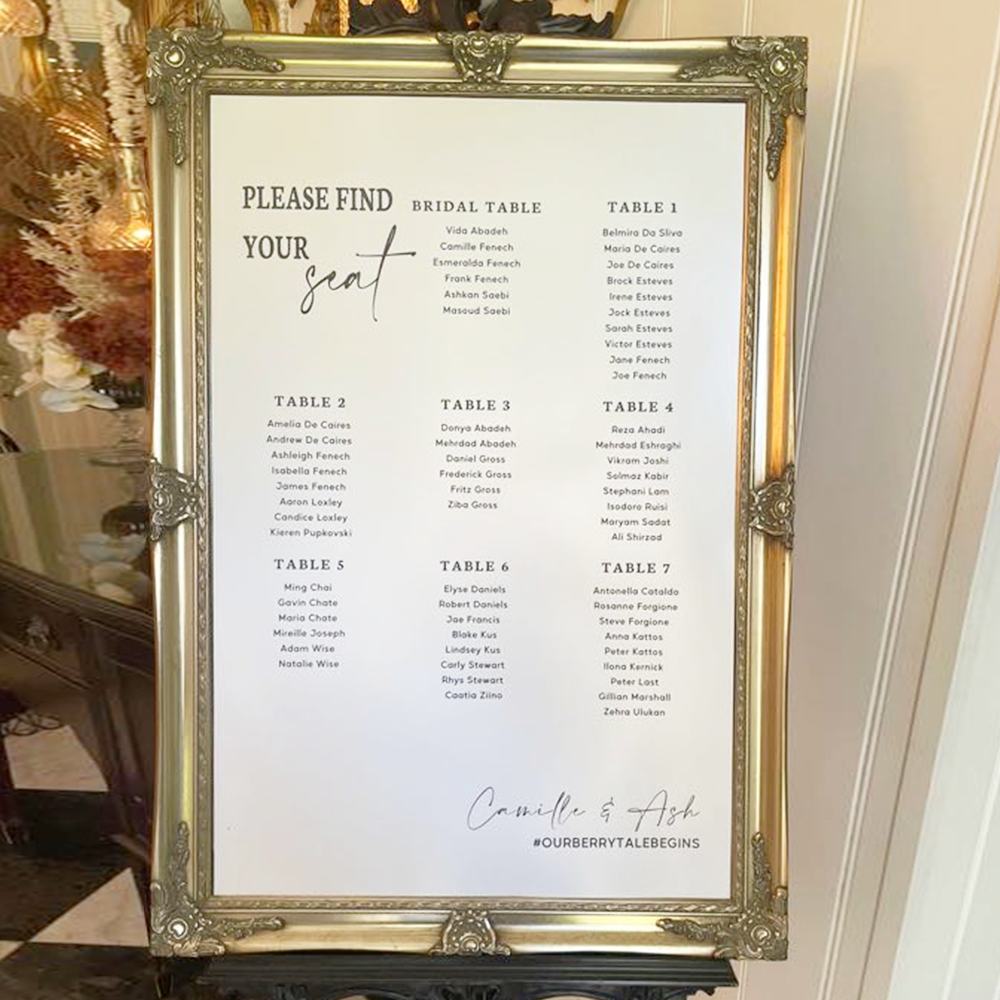 PLEASE FIND
YOUR
seat
BRIDAL TABLE
Vida Abadeh
Camille Fenech
Esmeralda Fenech
Frank Fenech
Ashkan Saebi
Masoud Saebi
TABLE 1
Belmira Da Sliva
Maria De Caires
Joe De Caires
Brock Esteves
Irene Esteves
Jock Esteves
Sarah Esteves
Victor Esteves
Jane Fenech
Joe Fenech
TABLE 2
Amelia De Caires
Andrew De Caires
Ashleigh Fenech
Isabella Fenech
James Fenech
Aaron Loxley
Candice Loxley
Kieren Pupkovski
TABLE 3
Donya Abadeh
Mehrdad Abadeh
Daniel Gross
Frederick Gross
Fritz Gross
Ziba Gross
TABLE 4
Reza Ahadi
Mehrdad Eshraghi
Vikram Joshi
Solmaz Kabir
Stephani Lam
Isodoro Ruisi
Maryam Sadat
Ali Shirzad
TABLE 5
Ming Chai
Gavin Chate
Maria Chate
Mireille Joseph
Adam Wise
Natalie Wise
TABLE 6
Elyse Daniels
Robert Daniels
Jae Francis
Blake Kus
Lindsey Kus
Carly Stewart
Rhys Stewart
Caatia Ziino
TABLE 7
Antonella Cataldo
Rosanne Forgione
Steve Forgione
Anna Kattos
Peter Kattos
Ilona Kernick
Peter Last
Gillian Marshall
Zehra Ulukan
Camille & Ash
#OURBERRYTALEBEGINS